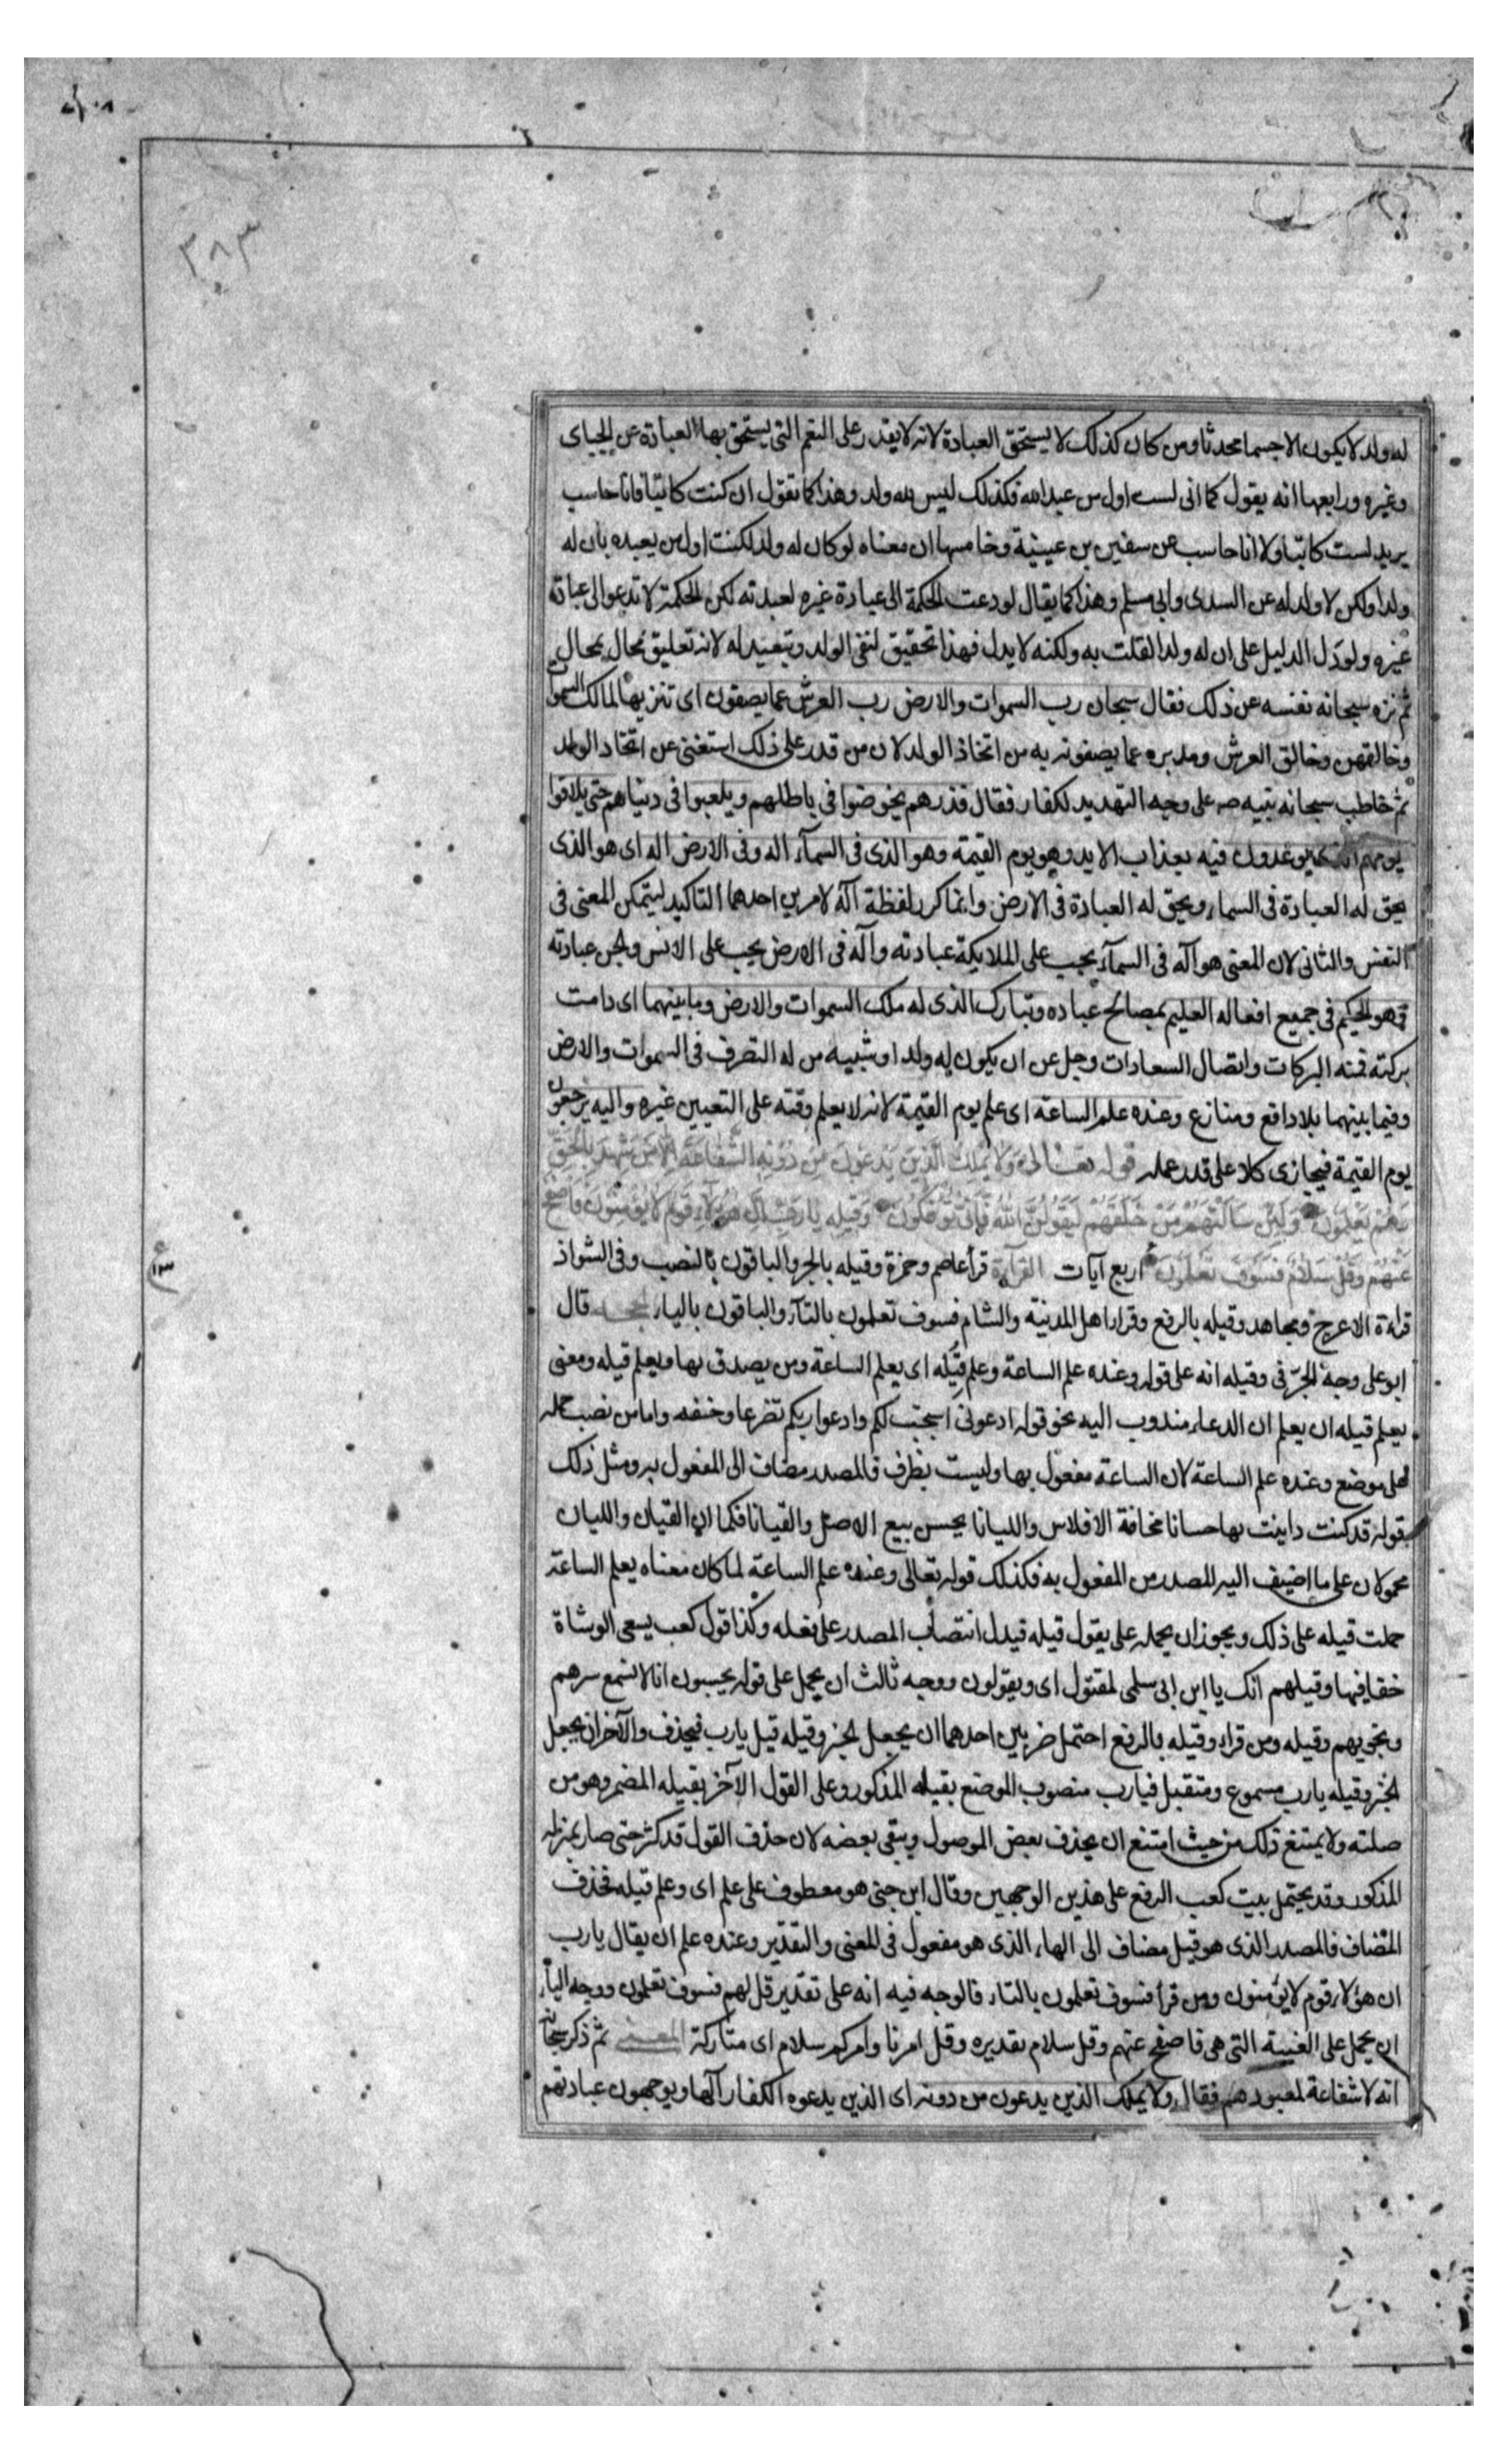 ٣٨٣
له ولد لا يكون الا جسما محدثا ومن كان كذلك لا يستحق العبادة لانه لا يقدر على النعم التى يستحق بها العبادة عن الجباى
وغيره ورابعها انه يقول كما انى لست اول من عبد الله فكذلك ليس لله ولد وهذا كما تقول ان كنت كاتبا فانا حاسب
يريد لست كاتبا ولا انا حاسب عن سفين بن عيينة وخامسها ان معناه لو كان له ولد لكنت اول من يعبده بان له
ولدا ولكن لا ولد له عن السدى وابى مسلم وهذا كما يقال لو دعت الحكمة الى عبادة غيره لعبدته لكن الحكمة لا تدعو الى عبادة
غيره ولو دل الدليل على ان له ولدا لقلت به ولكنه لا يدل فهذا تحقيق لنفى الولد وتبعيد له لانه تعليق محال بمحال
ثم نزه سبحانه نفسه عن ذلك فقال سبحان رب السموات والارض رب العرش عما يصفون اى تنزيها لمالك السموات
وخالقهن وخالق العرش ومدبره عما يصفونه به من اتخاذ الولد لان من قدر على ذلك استغنى عن اتخاذ الولد
ثم خاطب سبحانه نبيه ص على وجه التهديد لكفار فقال فذرهم يخوضوا فى باطلهم ويلعبوا فى دنياهم حتى يلاقوا
يومهم الذى يوعدون فيه بعذاب الابد وهو يوم القيمة وهو الذى فى السمآء اله وفى الارض اله اى هو الذى
يحق له العبادة فى السماء ويحق له العبادة فى الارض وانما كرر لفظة آله لامرين احدهما التاكيد ليتمكن المعنى فى
النفس والثانى لان المعنى هو آله فى السمآء يجب على الملايكة عبادته وآله فى الارض يجب على الانس والجن عبادته
وهو الحكيم فى جميع افعاله العليم بمصالح عباده وتبارك الذى له ملك السموات والارض وما بينهما اى دامت
بركته فمنه البركات وايصال السعادات وجل عن ان يكون له ولد او شبيه من له التصرف فى السموات والارض
وفيما بينهما بلا دافع ومنازع وعنده علم الساعة اى علم يوم القيمة لانه لا يعلم وقته على التعيين غيره واليه يرجعون
يوم القيمة فيجازى كلا على قدر عمله قوله تعالى وَلَا يَمْلِكُ الَّذِينَ يَدْعُونَ مِن دُونِهِ الشَّفَاعَةَ إِلَّا مَن شَهِدَ بِالْحَقِّ
وَهُمْ يَعْلَمُونَ وَلَئِن سَأَلْتَهُم مَّنْ خَلَقَهُمْ لَيَقُولُنَّ اللهُ فَأَنَّى يُؤْفَكُونَ وَقِيلِهِ يَا رَبِّ إِنَّ هَؤُلَاءِ قَوْمٌ لَا يُؤْمِنُونَ فَاصْفَحْ
عَنْهُمْ وَقُلْ سَلَامٌ فَسَوْفَ تَعْلَمُونَ اربع آيات القرآءة قرأ عاصم وحمزة وقيله بالجر والباقون بالنصب وفى الشواذ
قراءة الاعرج ومجاهد وقيله بالرفع وقرا اهل المدينة والشام فسوف تعلمون بالتآء والباقون بالياء الحجة قال
ابو على وجه الجرّ فى وقيله انه على قوله وعنده علم الساعة وعلم قيله اى يعلم الساعة ومن يصدق بها ويعلم قيله ومعنى
يعلم قيله ان يعلم ان الدعاء مندوب اليه نحو قوله ادعونى استجب لكم وادعوا ربكم تضرعا وخفيه واما من نصب حمله
على موضع وعنده علم الساعة لان الساعة مفعول بها وليست بظرف فالمصدر مضاف الى المفعول به ومثل ذلك
قوله قد كنت داينت بها حسانا مخافة الافلاس والليانا يحسن بيع الاصل والقيانا فكما ان القيان والليان
محمولان على ما اضيف اليه المصدر من المفعول به فكذلك قوله تعالى وعنده علم الساعة لما كان معناه يعلم الساعة
حملت قيله على ذلك ويجوز ان يحمله على يقول قيله فيدل انتصاب المصدر على فعله وكذا قول كعب يسعى الوشاة
وقيلهم انك يا ابن ابى سلمى لمقتول اى ويقولون ووجه ثالث ان يحمل على قوله يحسبون انا لا نسمع سرهم
ونجويهم وقيله ومن قرا وقيله بالرفع احتمل ضربين احدهما ان يجعل الخبر وقيله قيل يا رب فيحذف والآخر ان يجعل
الخبر وقيله يا رب مسموع ومتقبل فيا رب منصوب الموضع بقيله المذكور وعلى القول الآخر بقيله المضمر وهو من
صلته ولا يمتنع ذلك من حيث امتنع ان يحذف بعض الموصول ويبقى بعضه لان حذف القول قد كثر حتى صار بمنزله
المذكور وقد يحتمل بيت كعب الرفع على هذين الوجهين وقال ابن جنى هو معطوف على علم اى وعلم قيله فحذف
المضاف فالمصدر الذى هو قيل مضاف الى الهاء الذى هو مفعول فى المعنى والتقدير وعنده علم ان يقال يا رب
ان هؤلاء قوم لا يؤمنون ومن قرأ فسوف تعلمون بالتاء فالوجه فيه انه على تقدير قل لهم فسوف تعلمون ووجه اليآء
ان يحمل على الغيبة التى هى فاصفح عنهم وقل سلام تقديره وقل امرنا وامركم سلام اى متاركة المعنى ثم ذكر سبحانه
انه لا شفاعة لمعبودهم فقال ولا يملك الذين يدعون من دونه اى الذين يدعوه الكفار آلها ويوجهون عبادتهم